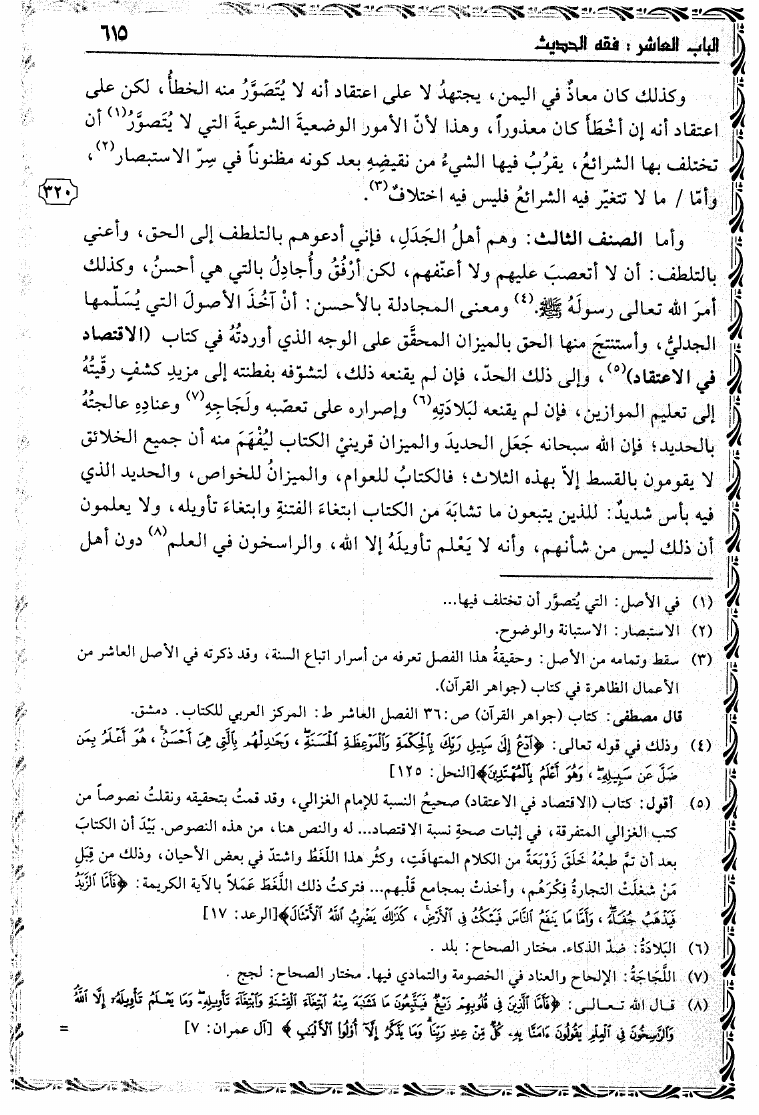 الباب العاشر : فقه الحديث
٦١٥
وكذلك كان معاذٌ في اليمن، يجتهدُ لا على اعتقاد أنه لا يُتَصَوَّرُ منه الخطأُ، لكن على
اعتقاد أنه إن أخْطَأَ كان معذوراً، وهذا لأنّ الأمور الوضعيةَ الشرعيةَ التي لا يُتَصوَّرُ(١) أن
تختلف بها الشرائعُ، يقرُبُ فيها الشيءُ من نقيضِهِ بعد كونه مظنوناً في سِرّ الاستبصار(٢)،
وأمّا / ما لا تتغيّر فيه الشرائعُ فليس فيه اختلافٌ(٣).
٣٢٠
وأما الصنف الثالث: وهم أهلُ الجَدَلِ، فإني أدعوهم بالتلطف إلى الحق، وأعني
بالتلطف: أن لا أتعصبَ عليهم ولا أعنّفهم، لكن أرْفُقُ وأُجادِلُ بالتي هي أحسنُ، وكذلك
أمرَ الله تعالى رسولَهُ ﷺ.(٤) ومعنى المجادلة بالأحسن: أنْ آخُذَ الأصولَ التي يُسَلّمها
الجدليُّ، وأستنتجَ منها الحق بالميزان المحقَّق على الوجه الذي أوردتُهُ في كتاب (الاقتصاد
في الاعتقاد)(٥)، وإلى ذلك الحدّ، فإن لم يقنعه ذلك، لتشوّفه بفطنته إلى مزيدِ كشفٍ رقّيتُهُ
إلى تعليم الموازين، فإن لم يقنعه لبَلادَتِهِ(٦) وإصراره على تعصّبه ولَجَاجِهِ(٧) وعنادِهِ عالجتُهُ
بالحديد؛ فإن الله سبحانه جَعَل الحديدَ والميزان قرينيْ الكتاب ليُفْهَمَ منه أن جميع الخلائق
لا يقومون بالقسط إلاّ بهذه الثلاث؛ فالكتابُ للعوام، والميزانُ للخواص، والحديد الذي
فيه بأس شديدٌ: للذين يتبعون ما تشابَهَ من الكتاب ابتغاءَ الفتنةِ وابتغاءَ تأويله، ولا يعلمون
أن ذلك ليس من شأنهم، وأنه لا يَعْلم تأويلَهُ إلا الله، والراسخون في العلم(٨) دون أهل
(١) في الأصل: التي يُتصوَّر أن تختلف فيها...
(٢) الاستبصار: الاستبانة والوضوح.
(٣) سقط وتمامه من الأصل: وحقيقةُ هذا الفصل تعرفه من أسرار اتباع السنة، وقد ذكرته في الأصل العاشر من
الأعمال الظاهرة في كتاب (جواهر القرآن).
قال مصطفى: كتاب (جواهر القرآن) ص:٣٦ الفصل العاشر ط: المركز العربي للكتاب. دمشق.
(٤) وذلك في قوله تعالى: ﴿ٱدْعُ إِلَىٰ سَبِيلِ رَبِّكَ بِٱلْحِكْمَةِ وَٱلْمَوْعِظَةِ ٱلْحَسَنَةِ، وَجَٰدِلْهُم بِٱلَّتِى هِىَ أَحْسَنُ، هُوَ أَعْلَمُ بِمَن
ضَلَّ عَن سَبِيلِهِۦ، وَهُوَ أَعْلَمُ بِٱلْمُهْتَدِينَ﴾[النحل: ١٢٥]
(٥) أقول: كتاب (الاقتصاد في الاعتقاد) صحيحُ النسبة للإمام الغزالي، وقد قمتُ بتحقيقه ونقلتُ نصوصاً من
كتب الغزالي المتفرقة، في إثبات صحةِ نسبة الاقتصاد... له والنص هنا، من هذه النصوص. بَيْدَ أن الكتابَ
بعد أن تمَّ طبعُهُ خَلَقَ زَوْبَعَةً من الكلام المتهافَتِ، وكثُر هذا اللّغَطُ واشتدّ في بعض الأحيان، وذلك من قِبَلِ
مَنْ شغلَتْ التجارةُ فِكْرَهُم، وأخذتْ بمجامع قَلْبهم... فتركتُ ذلك اللَّغَطَ عَمَلاً بالآية الكريمة: ﴿فَأَمَّا ٱلزَّبَدُ
فَيَذْهَبُ جُفَآءً، وَأَمَّا مَا يَنفَعُ ٱلنَّاسَ فَيَمْكُثُ فِى ٱلْأَرْضِ، كَذَٰلِكَ يَضْرِبُ ٱللَّهُ ٱلْأَمْثَالَ﴾[الرعد: ١٧]
(٦) البَلادَةُ: ضدّ الذكاء. مختار الصحاح: بلد .
(٧) اللَّجَاجَةُ: الإلحاح والعناد في الخصومة والتمادي فيها. مختار الصحاح: لجج .
(٨) قـال الله تـعـالـى: ﴿فَأَمَّا ٱلَّذِينَ فِى قُلُوبِهِمْ زَيْغٌ فَيَتَّبِعُونَ مَا تَشَٰبَهَ مِنْهُ ٱبْتِغَآءَ ٱلْفِتْنَةِ وَٱبْتِغَآءَ تَأْوِيلِهِۦ وَمَا يَعْلَمُ تَأْوِيلَهُۥٓ إِلَّا ٱللَّهُ
وَٱلرَّٰسِخُونَ فِى ٱلْعِلْمِ يَقُولُونَ ءَامَنَّا بِهِۦ كُلٌّ مِّنْ عِندِ رَبِّنَا وَمَا يَذَّكَّرُ إِلَّآ أُو۟لُوا۟ ٱلْأَلْبَٰبِ ﴾ [آل عمران: ٧]
=